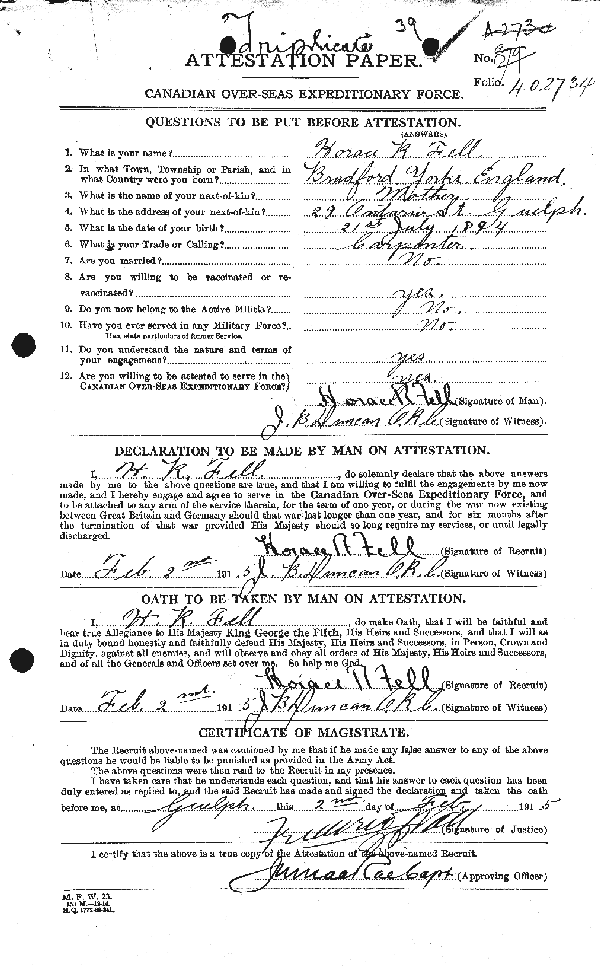 Triplicate 39
A-2730
ATTESTATION PAPER.
No.
Folio. 402734
CANADIAN OVER-SEAS EXPEDITIONARY FORCE.
QUESTIONS TO BE PUT BEFORE ATTESTATION.
(ANSWERS)
1. What is your name? Horace R Fell
2. In what Town, Township or Parish, and in
what Country were you born? Bradford Yorks England
3. What is the name of your next-of-kin? Mother
4. What is the address of your next-of-kin? 29 St. Guelph.
5. What is the date of your birth? 21st July 1894
6. What is your Trade or Calling? Carpenter
7. Are you married? No.
8. Are you willing to be vaccinated or re-
vaccinated? yes.
9. Do you now belong to the Active Militia? No.
10. Have you ever served in any Military Force? No.
If so, state particulars of former Service.
11. Do you understand the nature and terms of
your engagement? yes
12. Are you willing to be attested to serve in the
CANADIAN OVER-SEAS EXPEDITIONARY FORCE? yes.
Horace R Fell (Signature of Man).
J. B. Duncan (Signature of Witness).
DECLARATION TO BE MADE BY MAN ON ATTESTATION.
I, H R Fell, do solemnly declare that the above answers
made by me to the above questions are true, and that I am willing to fulfil the engagements by me now
made, and I hereby engage and agree to serve in the Canadian Over-Seas Expeditionary Force, and
to be attached to any arm of the service therein, for the term of one year, or during the war now existing
between Great Britain and Germany should that war last longer than one year, and for six months after
the termination of that war provided His Majesty should so long require my services, or until legally
discharged.
Horace R Fell (Signature of Recruit)
Date Feb. 2nd 1915 J. B. Duncan (Signature of Witness)
OATH TO BE TAKEN BY MAN ON ATTESTATION.
I, H R Fell, do make Oath, that I will be faithful and
bear true Allegiance to His Majesty King George the Fifth, His Heirs and Successors, and that I will as
in duty bound honestly and faithfully defend His Majesty, His Heirs and Successors, in Person, Crown and
Dignity, against all enemies, and will observe and obey all orders of His Majesty, His Heirs and Successors,
and of all the Generals and Officers set over me. So help me God.
Horace R Fell (Signature of Recruit)
Date Feb. 2nd 1915 J B Duncan (Signature of Witness)
CERTIFICATE OF MAGISTRATE.
The Recruit above-named was cautioned by me that if he made any false answer to any of the above
questions he would be liable to be punished as provided in the Army Act.
The above questions were then read to the Recruit in my presence.
I have taken care that he understands each question, and that his answer to each question has been
duly entered as replied to, and the said Recruit has made and signed the declaration and taken the oath
before me, at Guelph this 2nd day of Feb 1915
(Signature of Justice)
I certify that the above is a true copy of the Attestation of the above-named Recruit.
Capt (Approving Officer)
M. F. W. 23.